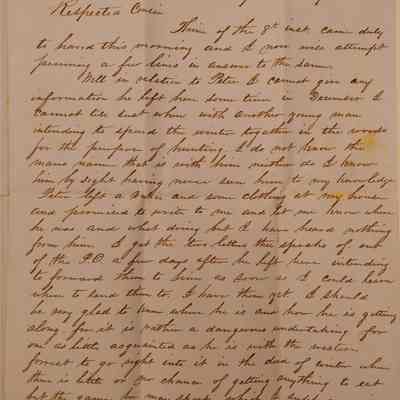 Respected Cousin
Thine of the 8th inst. came duly
to hand this morning and I now will attempt
penning a few lines in answer to the same.
Well in relation to Peter I cannot give any
information he left here some time in December I
cannot tell just when with another young man
intending to spend the winter together in the woods
for the purpose of hunting, I do not know the
mans name that is with him neither do I know
him by sight having never seen him to my knowledge
Peter left a and some clothing at my house
and promised to write to me and let me know where
he was and what doing but I have heard nothing
from him I got the two letters thee speaks of out
of the P.O. a few days after he left here intending
to forward them to him as soon as I could learn
where to send them to, I have them yet. I should
be very glad to know where he is and how he is getting
along for it is rather a dangerous undertaking for
one as little acquainted as he is with the western
forest to go right into it in the dead of winter when
there is little or no chance of getting anything to eat
but the game